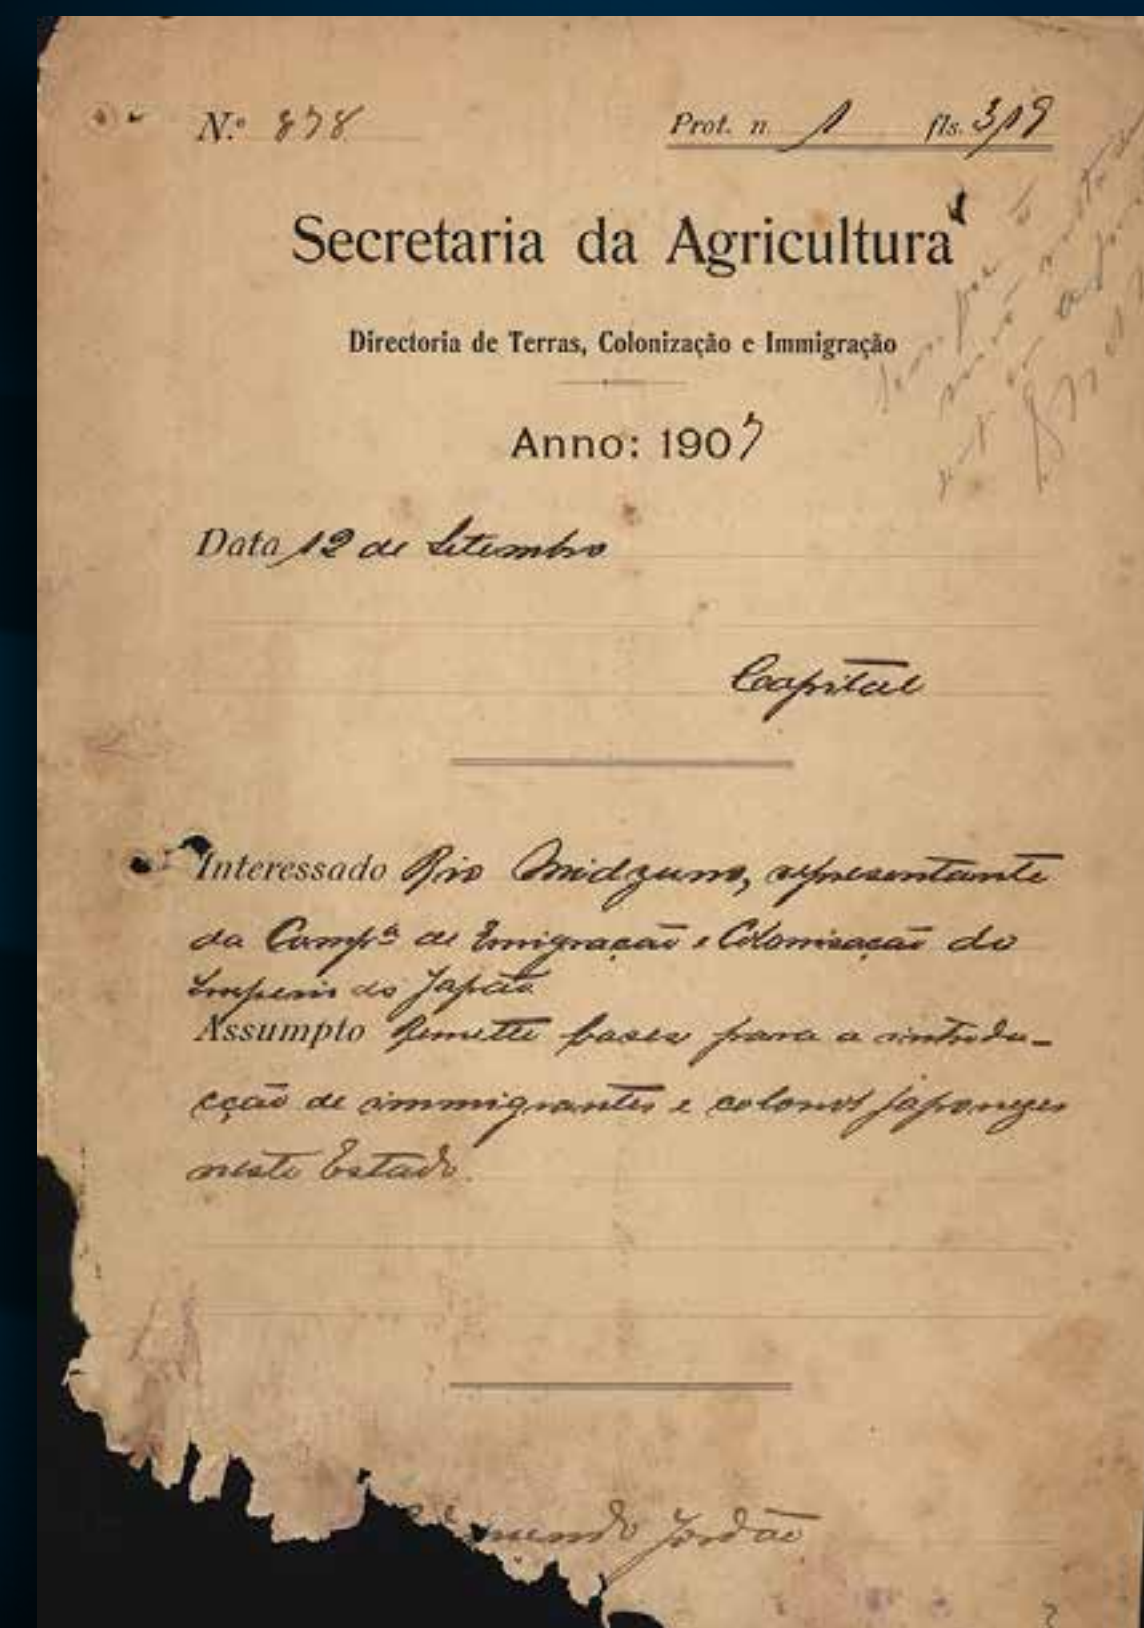 N.º 878 Prot. n. 1 fls. 319
Secretaria da Agricultura
Directoria de Terras, Colonização e Immigração
Anno: 1907
Data 12 de Setembro
Capital
Interessado Rio Midzuno, representante
da Comp.ª de Emigração e Colonisação do
Imperio do Japão
Assumpto Remette bases para a introdu-
cção de immigrantes e colonos japonezes
neste Estado.
Jordão